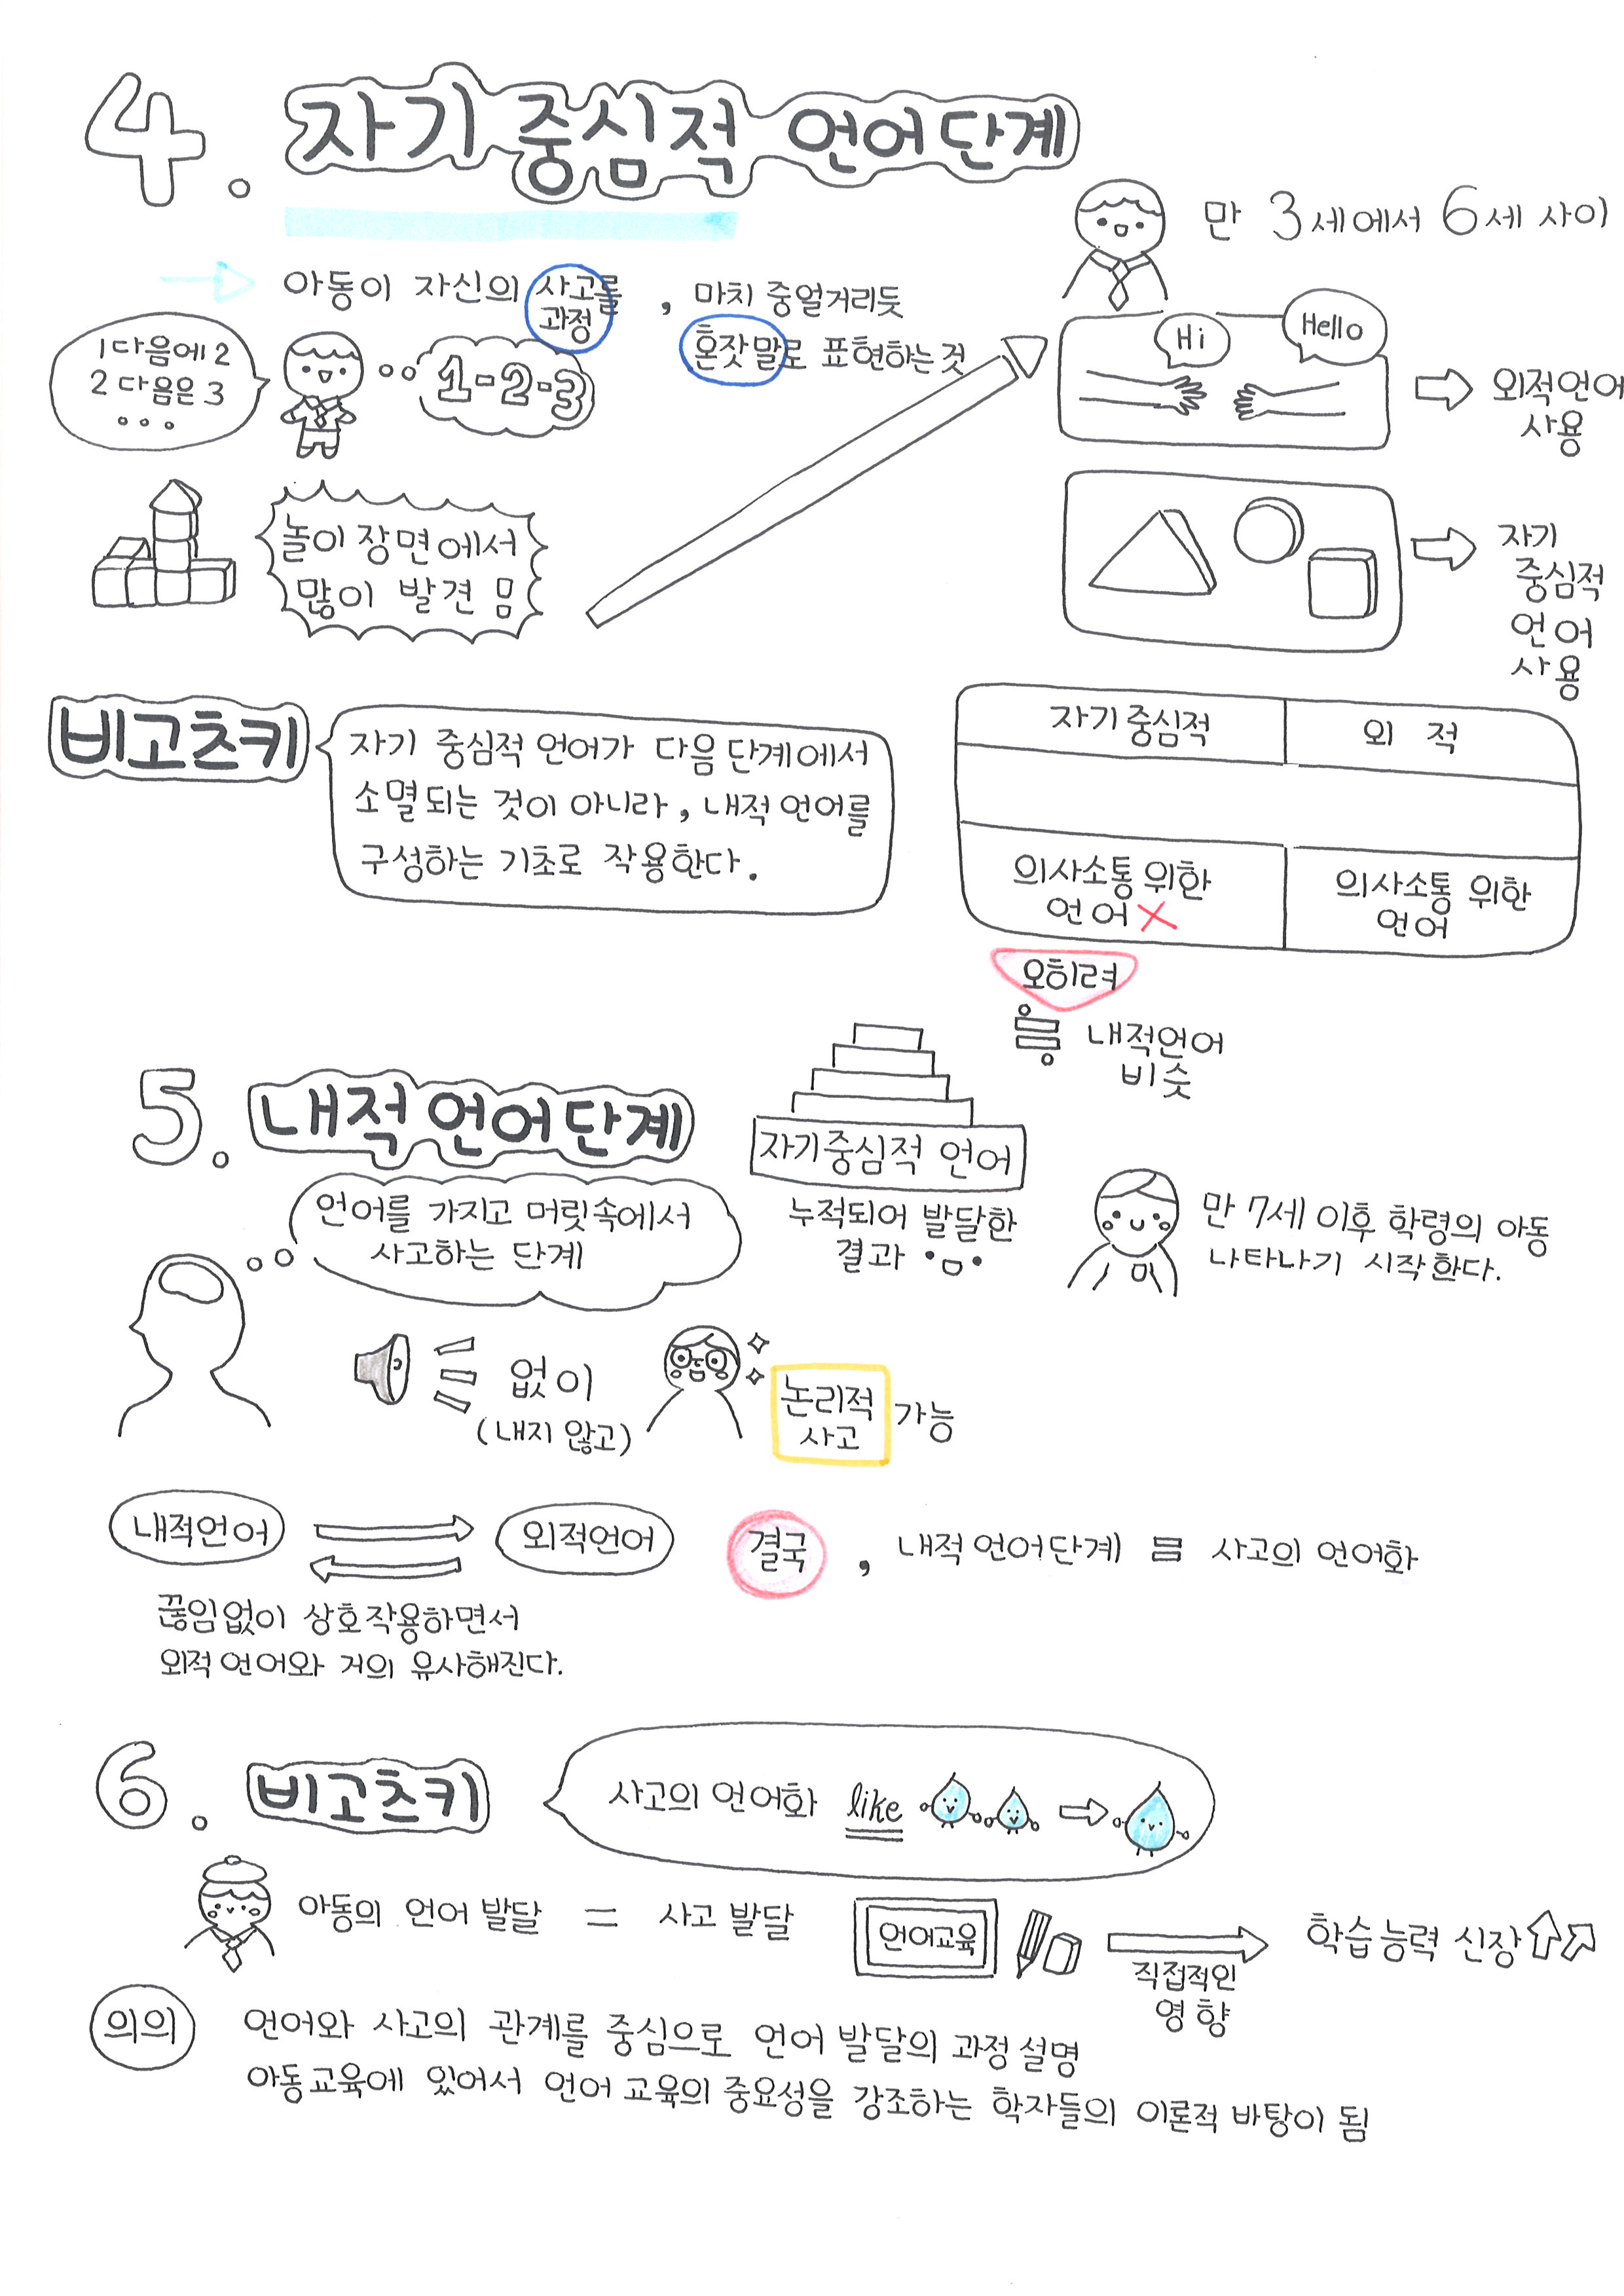 4. 자기 중심적 언어단계
만 3세에서 6세 사이
아동이 자신의 사고를 과정, 마치 중얼거리듯
혼잣말로 표현하는 것
1 다음에 2
2 다음은 3
...
1-2-3
놀이 장면에서
많이 발견 됨
Hi
Hello
외적언어
사용
자기
중심적
언어
사용
비고츠키
자기 중심적 언어가 다음 단계에서
소멸되는 것이 아니라, 내적 언어를
구성하는 기초로 작용한다.
자기중심적
외 적
의사소통 위한
언어 X
의사소통 위한
언어
오히려
≒ 내적언어
비슷
5. 내적 언어단계
언어를 가지고 머릿속에서
사고하는 단계
자기중심적 언어
누적되어 발달한
결과
만 7세 이후 학령의 아동
나타나기 시작한다.
없이
(내지 않고)
논리적
사고
가능
내적언어
외적언어
끊임없이 상호작용하면서
외적 언어와 거의 유사해진다.
결국, 내적 언어단계 = 사고의 언어화
6. 비고츠키
사고의 언어화 like
아동의 언어 발달 = 사고 발달
언어교육
직접적인
영향
학습능력 신장
의의
언어와 사고의 관계를 중심으로 언어 발달의 과정 설명
아동교육에 있어서 언어 교육의 중요성을 강조하는 학자들의 이론적 바탕이 됨